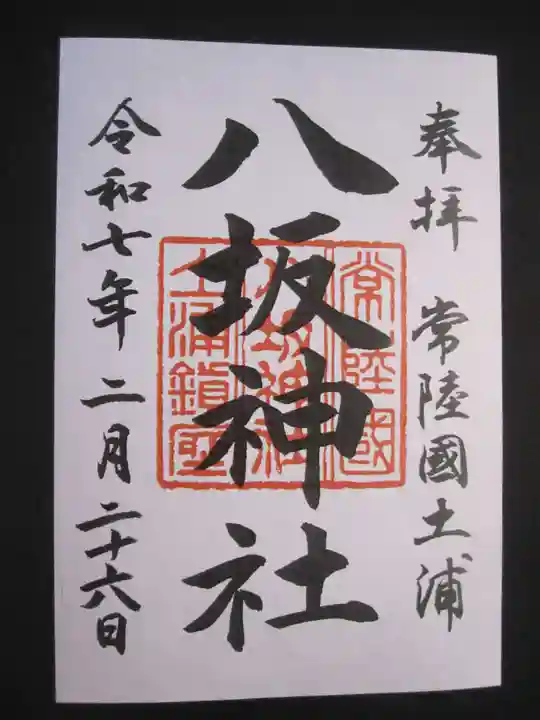 奉拝　常陸國土浦
八坂神社
常陸國
八坂神社
土浦鎮座
令和七年二月二十六日